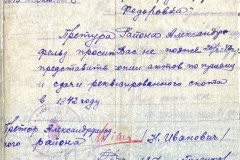 Федоровка"
Претура Района Александро
фельд просит Вас не позже
представить копии актов по приему
и сдачи реквизированного скота
в 1942 году.
Претор Александрофельд
района /Н. Иванович/